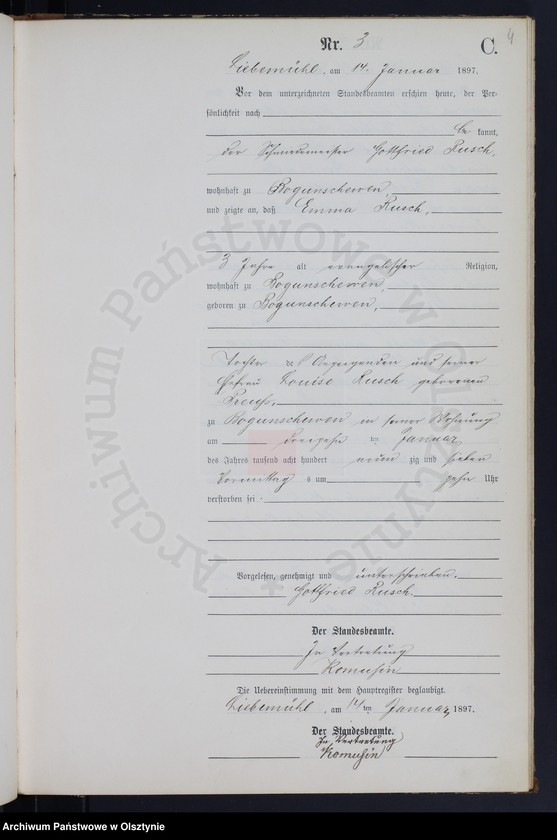 4
Nr. 3
C.
Liebemühl, am 14. Januar 1897.
Vor dem unterzeichneten Standesbeamten erschien heute, der Per-
sönlichkeit nach
be kannt,
der Gottfried Rusch,
wohnhaft zu Bogunschewen,
und zeigte an, daß Emma Rusch,
3 Jahre alt evangelischer Religion,
wohnhaft zu Bogunschewen,
geboren zu Bogunschewen,
Tochter des Anzeigenden und seiner
Ehefrau Louise Rusch geborenen
Preuß,
zu Bogunschewen in seiner Wohnung
am dreizehn ten Januar
des Jahres tausend acht hundert neun zig und sieben
Vormittag s um zehn Uhr
verstorben sei
Vorgelesen, genehmigt und unterschrieben.
Gottfried Rusch.
Der Standesbeamte.
In Vertretung
Komuhin
Die Uebereinstimmung mit dem Hauptregister beglaubigt.
Liebemühl, am 14 ten Januar, 1897.
Der Standesbeamte.
In Vertretung
Komuhin
Archiwum Państwowe w Olsztynie *
Archiwum Państwowe w Olsztynie